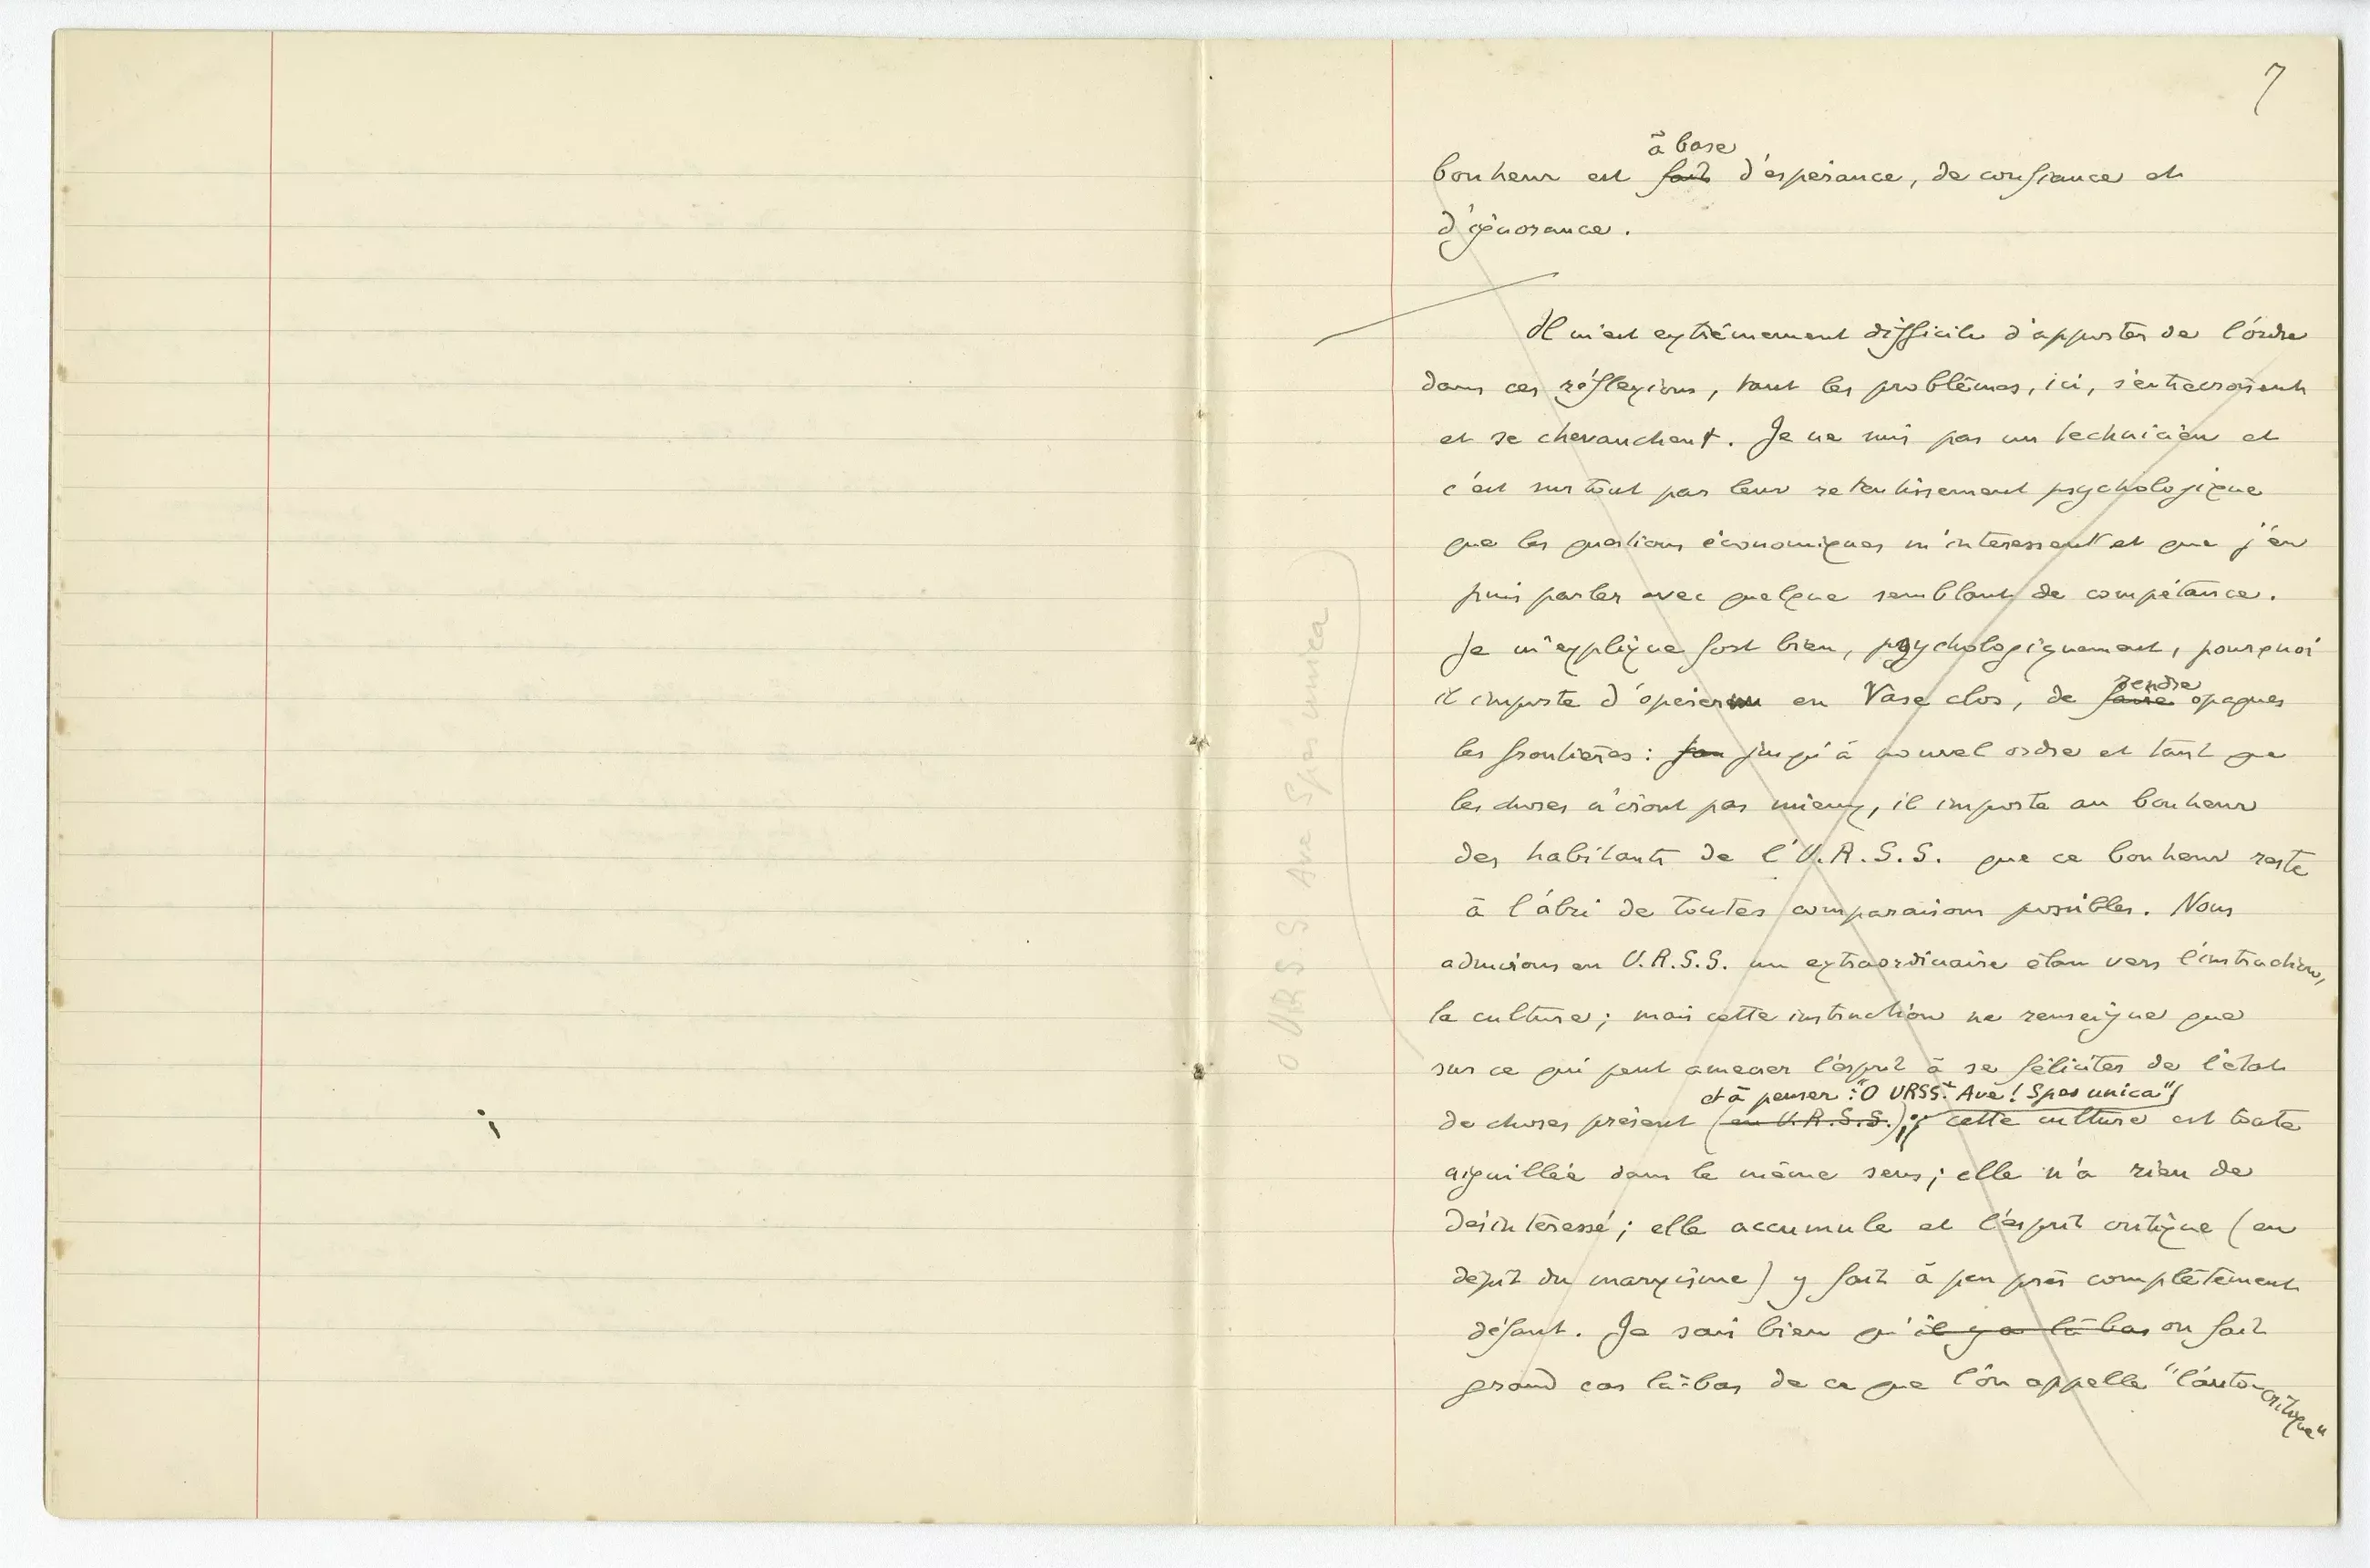 7
à base
bonheur est fait d'espérance, de confiance et
d'ignorance.
Il m'est extrêmement difficile d'apporter de l'ordre
dans ces réflexions, tant les problèmes, ici, s'entrecroisent
et se chevauchent. Je ne suis pas un technicien et
c'est surtout par leur retentissement psychologique
que les questions économiques m'intéressent et que j'en
puis parler avec quelque semblant de compétance.
Je m'explique fort bien, psychologiquement, pourquoi
rendre
il importe d'opérer en Vase clos, de faire opaques
les frontières : jusqu'à nouvel ordre et tant que
les choses n'iront pas mieux, il importe au bonheur
des habitants de l'U.R.S.S. que ce bonheur reste
à l'abri de toutes comparaisons possibles. Nous
admirions en U.R.S.S. un extraordinaire élan vers l'instruction,
la culture ; mais cette instruction ne renseigne que
sur ce qui peut amener l'esprit à se féliciter de l'état
et à penser : "O URSS. Ave ! Spes unica"
de choses présent (en U.R.S.S.) ; cette culture est toute
aiguillée dans le même sens ; elle n'a rien de
désintéressé ; elle accumule et l'esprit critique (en
dépit du marxisme) y fait à peu près complètement
défaut. Je sais bien qu'il y a là bas on fait
grand cas là-bas de ce que l'on appelle "l'auto-
critique"
O URSS. Ave Spes unica